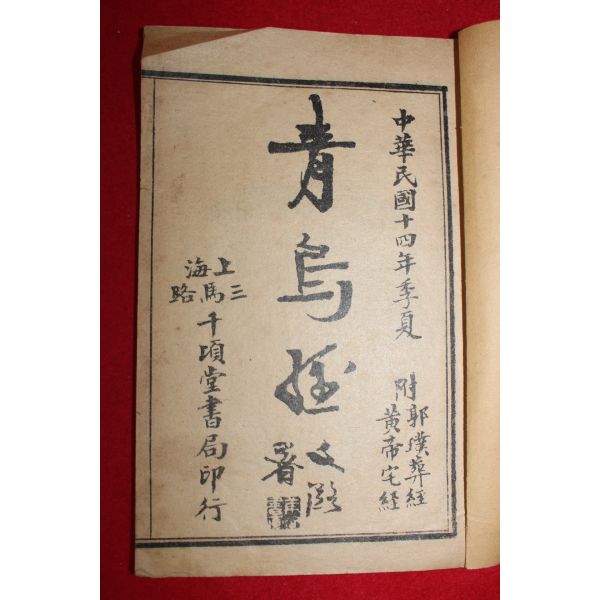 中華民國十四年季夏
附郭璞葬經
黃帝宅經
青烏經
文潞
署
上海三馬路
千頃堂書局印行